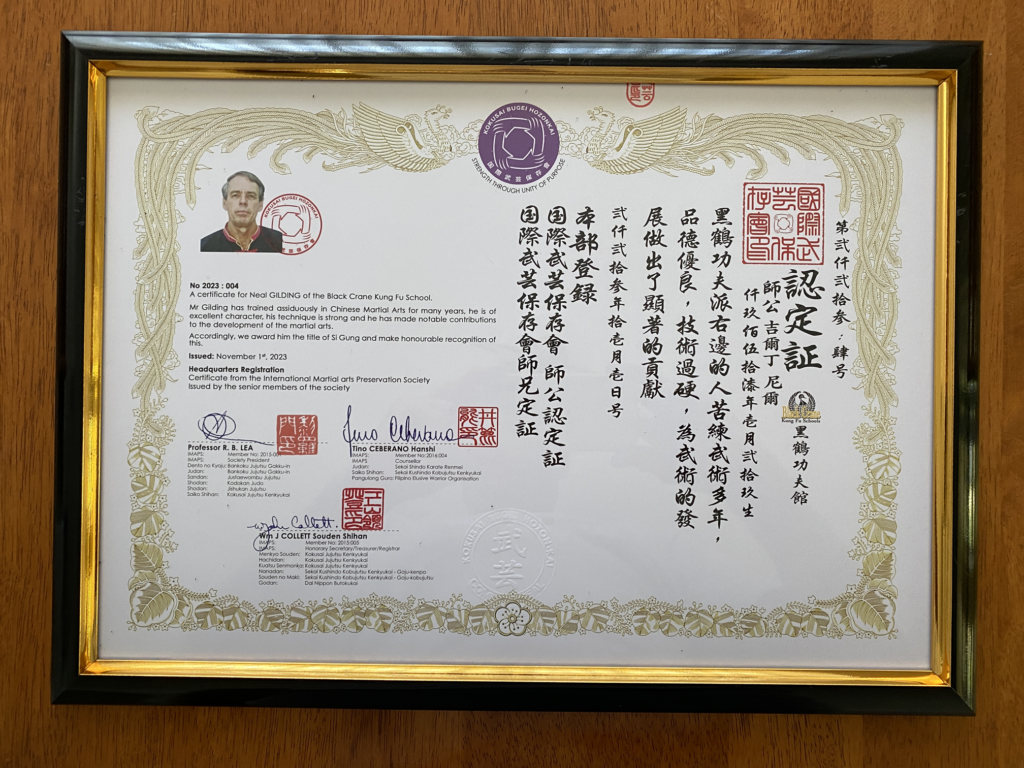 KOKUSAI BUGEI HOZONKAI
国際武芸保存會
STRENGTH THROUGH UNITY OF PURPOSE
KOKUSAI BUGEI HOZONKAI
No 2023 : 004
A certificate for Neal GILDING of the Black Crane Kung Fu School.
Mr Gilding has trained assiduously in Chinese Martial Arts for many years, he is of
excellent character, his technique is strong and he has made notable contributions
to the development of the martial arts.
Accordingly, we award him the title of Si Gung and make honourable recognition of
this.
Issued: November 1st, 2023
Headquarters Registration
Certificate from the International Martial arts Preservation Society
Issued by the senior members of the society
Professor R. B. LEA
IMAPS: Member No: 2015:00
IMAPS: Society President
Dento no Kyoju: Bankoku Jujutsu Gakku-in
Judan: Bankoku Jujutsu Gakku-in
Sandan: Justaewombu Jujutsu
Shodan: Kodokan Judo
Shodan: Jishukan Jujutsu
Saiko Shihan: Kokusai Jujutsu Kenkyukai
Tino Ceberano
Tino CEBERANO Hanshi
IMAPS: Member No: 2016:004
IMAPS: Counsellor
Judan: Sekai Shindo Karate Renmei
Saiko Shihan: Sekai Kushindo Kobujutsu Kenkyukai
Pangulang Guro: Filipino Elusive Warrior Organisation
Wm J COLLETT Souden Shihan
IMAPS: Member No: 2015:003
IMAPS: Honorary Secretary/Treasurer/Registrar
Menkyo Souden: Kokusai Jujutsu Kenkyukai
Hachidan: Kokusai Jujutsu Kenkyukai
Kuatsu Senmonka: Kokusai Jujutsu Kenkyukai
Nanadan: Sekai Kushindo Kobujutsu Kenkyukai - Goju-kenpo
Souden no Maki: Sekai Kushindo Kobujutsu Kenkyukai - Goju-kobujutsu
Godan: Dai Nippon Butokukai
武芸
第貳仟貳拾叁．肆号
國際武芸保存會印
認定証
黑鶴功夫館
Kung Fu Schools
師公吉爾丁尼爾
仟玖佰伍拾漆年壹月貳拾玖生
黑鶴功夫派右邊的人苦練武術多年，
品德優良，技術過硬，為武術的發
展做出了顯著的貢獻
貳仟貳拾叁年拾壹月壹日号
本部登録
国際武芸保存會師公認定証
国際武芸保存會師兄定証